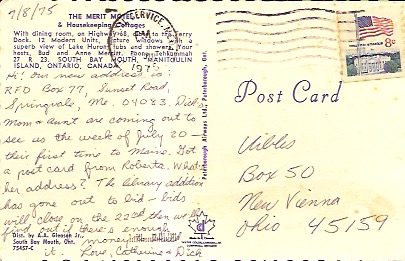 7/8/75
THE MERIT MOTEL
& Housekeeping Cottages
With dining room, on Highway 68, to Ferry
Dock. 12 Modern Units, picture windows with a
superb view of Lake Huron, tubs and showers. Your
hosts, Bud and Anne Merritt. Phone Tehkummah
27 R 23. SOUTH BAY MOUTH, MANITOULIN
ISLAND, ONTARIO, CANADA
Hi! Our new address is:
RFD Box 77, Sunset Road,
Springvale, Me. 04083. Dick's
Mom & aunt are coming out to
see us the week of July 20 -
their first time to Maine. Got
a post card from Roberta. What's
her address? The library addition
has gone out to bid - bids
will close on the 22nd, then we'll
find out if there's enough
money
it. Love, Catherine & Dick
Dist. by A.B. Gleason Jr.,
South Bay Mouth, Ont.
75457-C
Peterborough Airways Ltd., Peterborough, Ont.
SERVICE
8c
Post Card
Vibles
Box 50
New Vienna
Ohio 45159